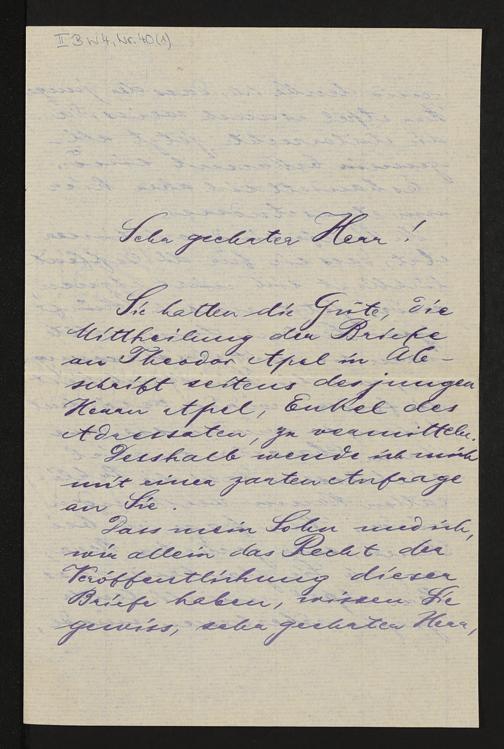 II B W 4, Nr. 40(1)
Sehr geehrter Herr!
Sie hatten die Güte, die
Mittheilung der Briefe
an Theodor Apel in Ab-
schrift seitens des jungen
Herrn Apel, Enkel des
Adressaten, zu vermitteln.
Desshalb wende ich mich
mit einer zarten Anfrage
an Sie.
Dass mein Sohn und ich,
wir allein das Recht der
Veröffentlichung dieser
Briefe haben, wissen Sie
gewiss, sehr geehrter Herr,